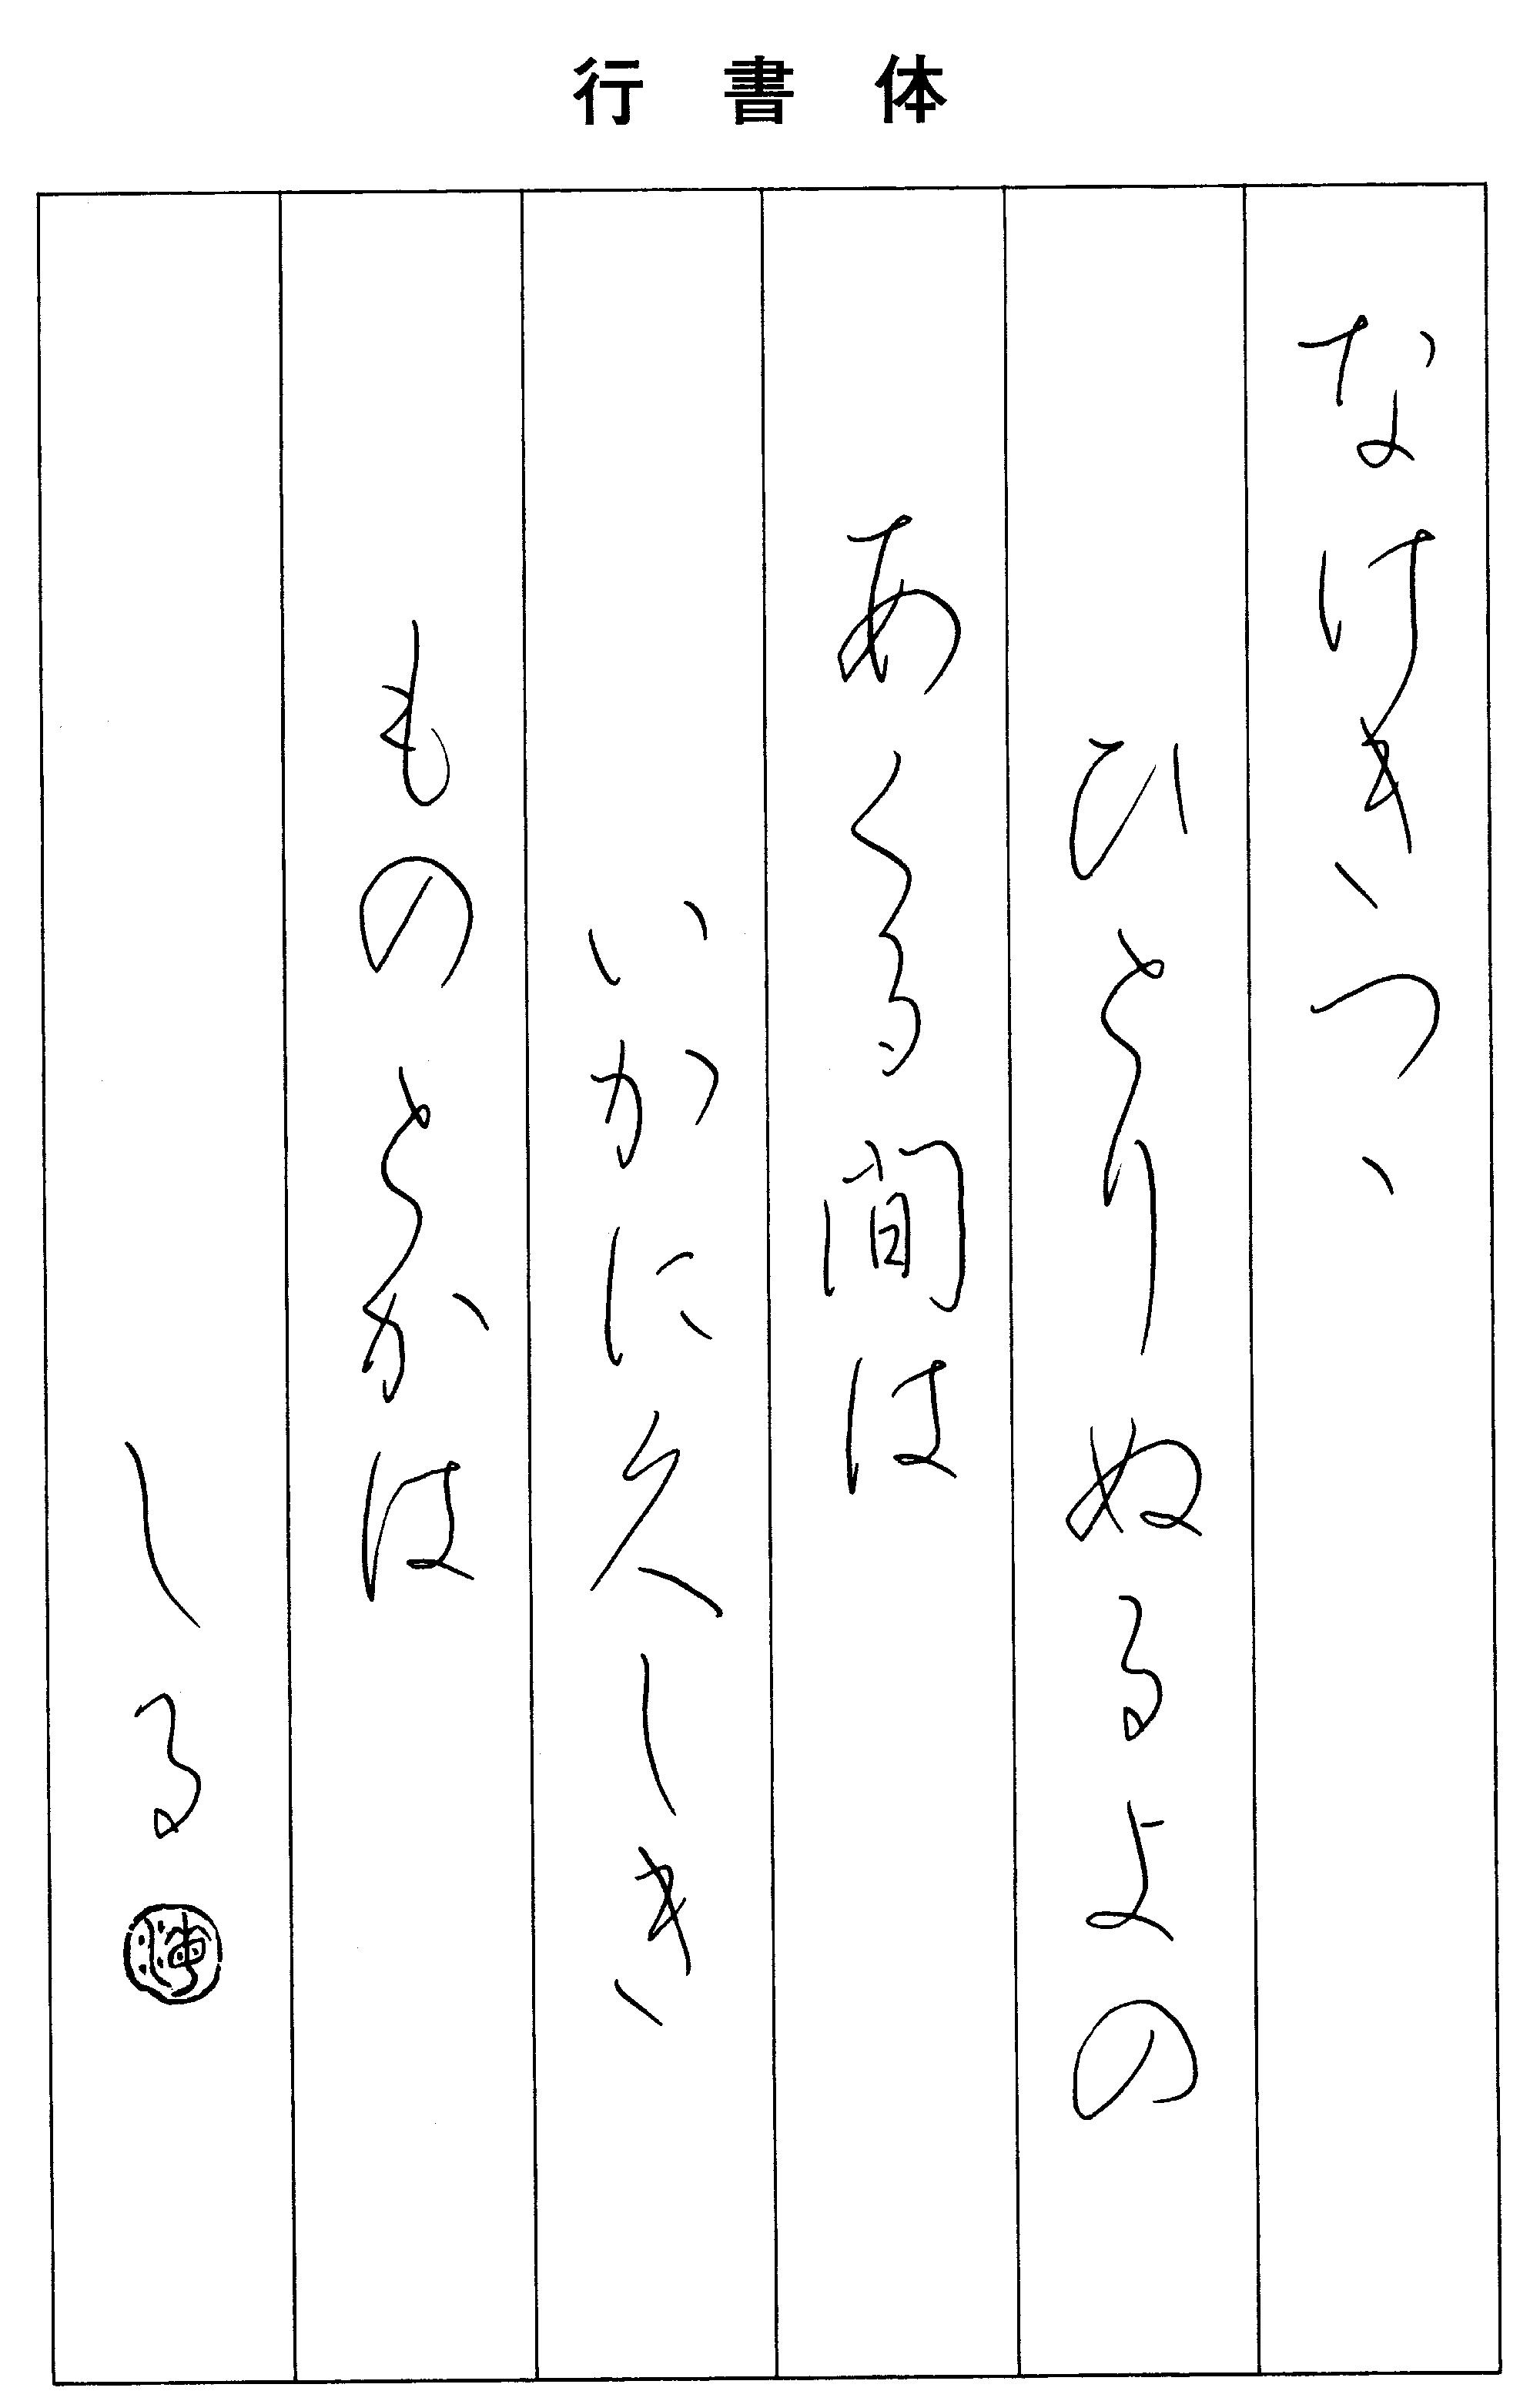 行書体
なけきつゝ
ひとりぬるよの
あくる間は
いかに久しき
ものとかは
しる